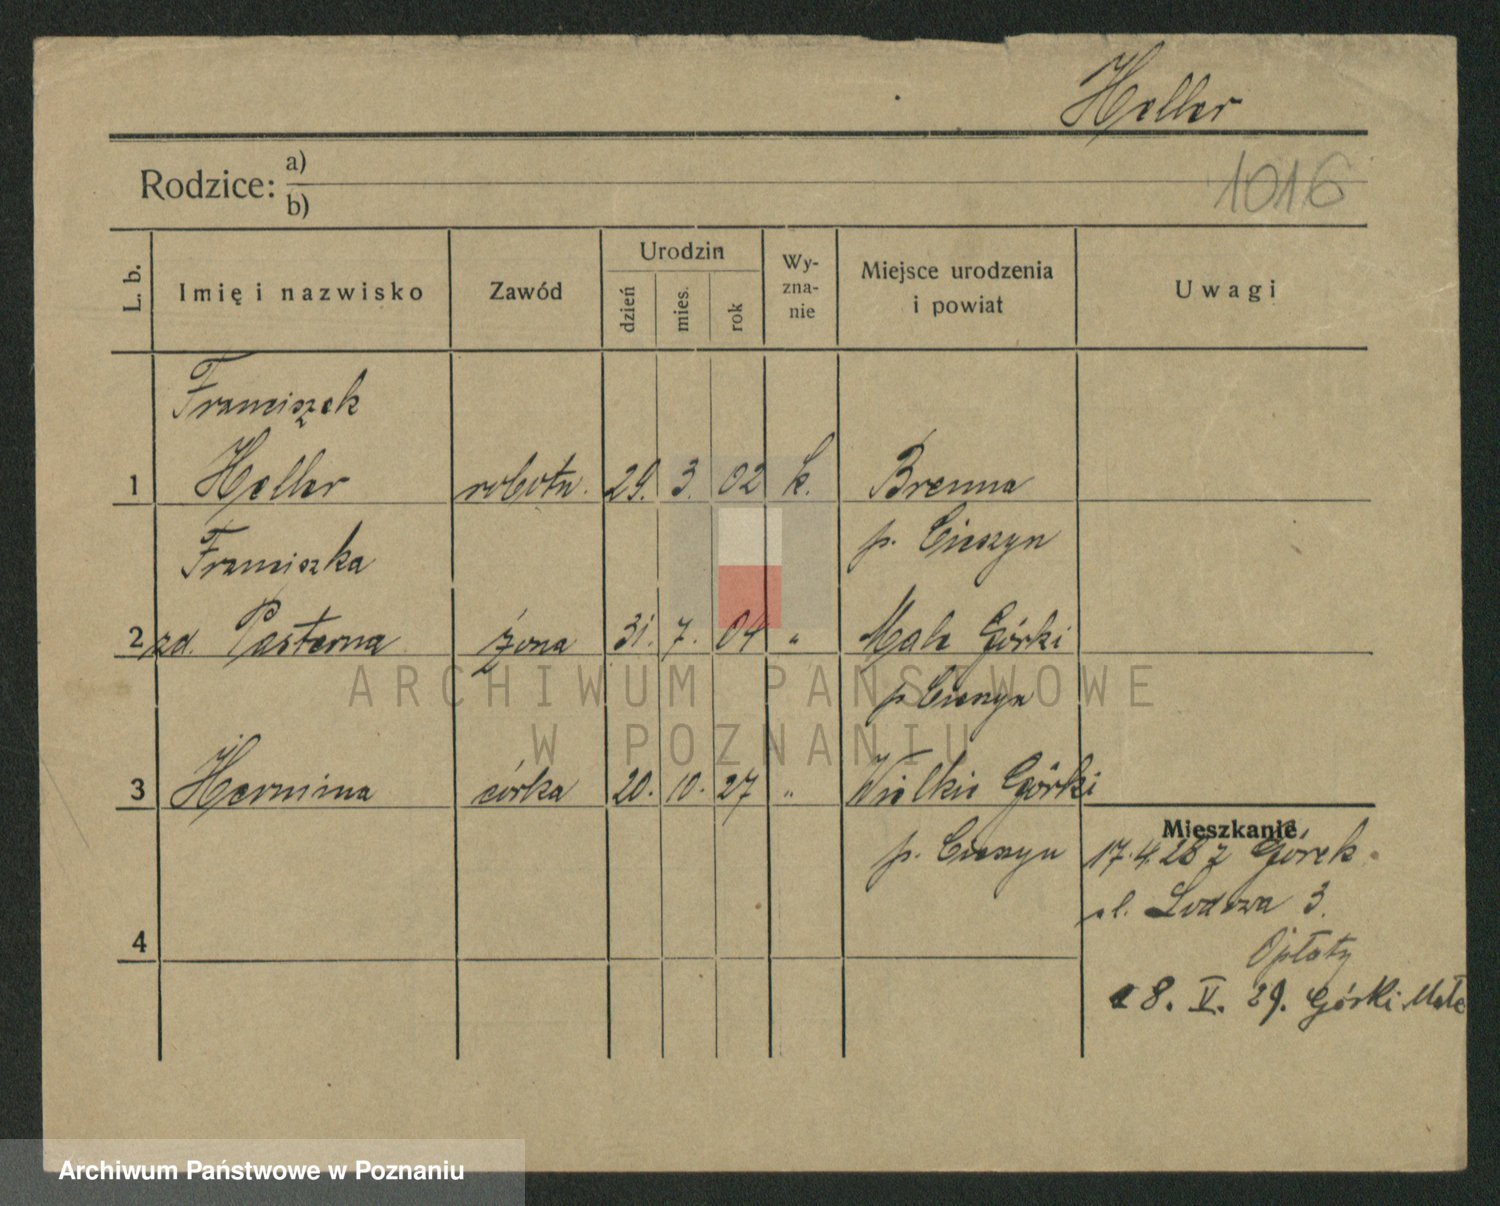 Heller
1016
Rodzice: a)
b)
L. b. Imię i nazwisko Zawód Urodzin dzień mies. rok Wy-zna-nie Miejsce urodzenia i powiat Uwagi
Franciszek
1 Heller robotn. 29. 3. 02 k. Brenna
Franciszka p. Cieszyn
2 zd. Pasterna żona 31. 7. 04 " Małe Górki
p. Cieszyn
3 Hermina córka 20. 10. 27 " Wielkie Górki
Mieszkanie
p. Cieszyn 17.4.28 z Górek
ul. 3.
4
Opłaty
8. V. 29. Górki Małe
ARCHIWUM PAŃSTWOWE
W POZNANIU
Archiwum Państwowe w Poznaniu